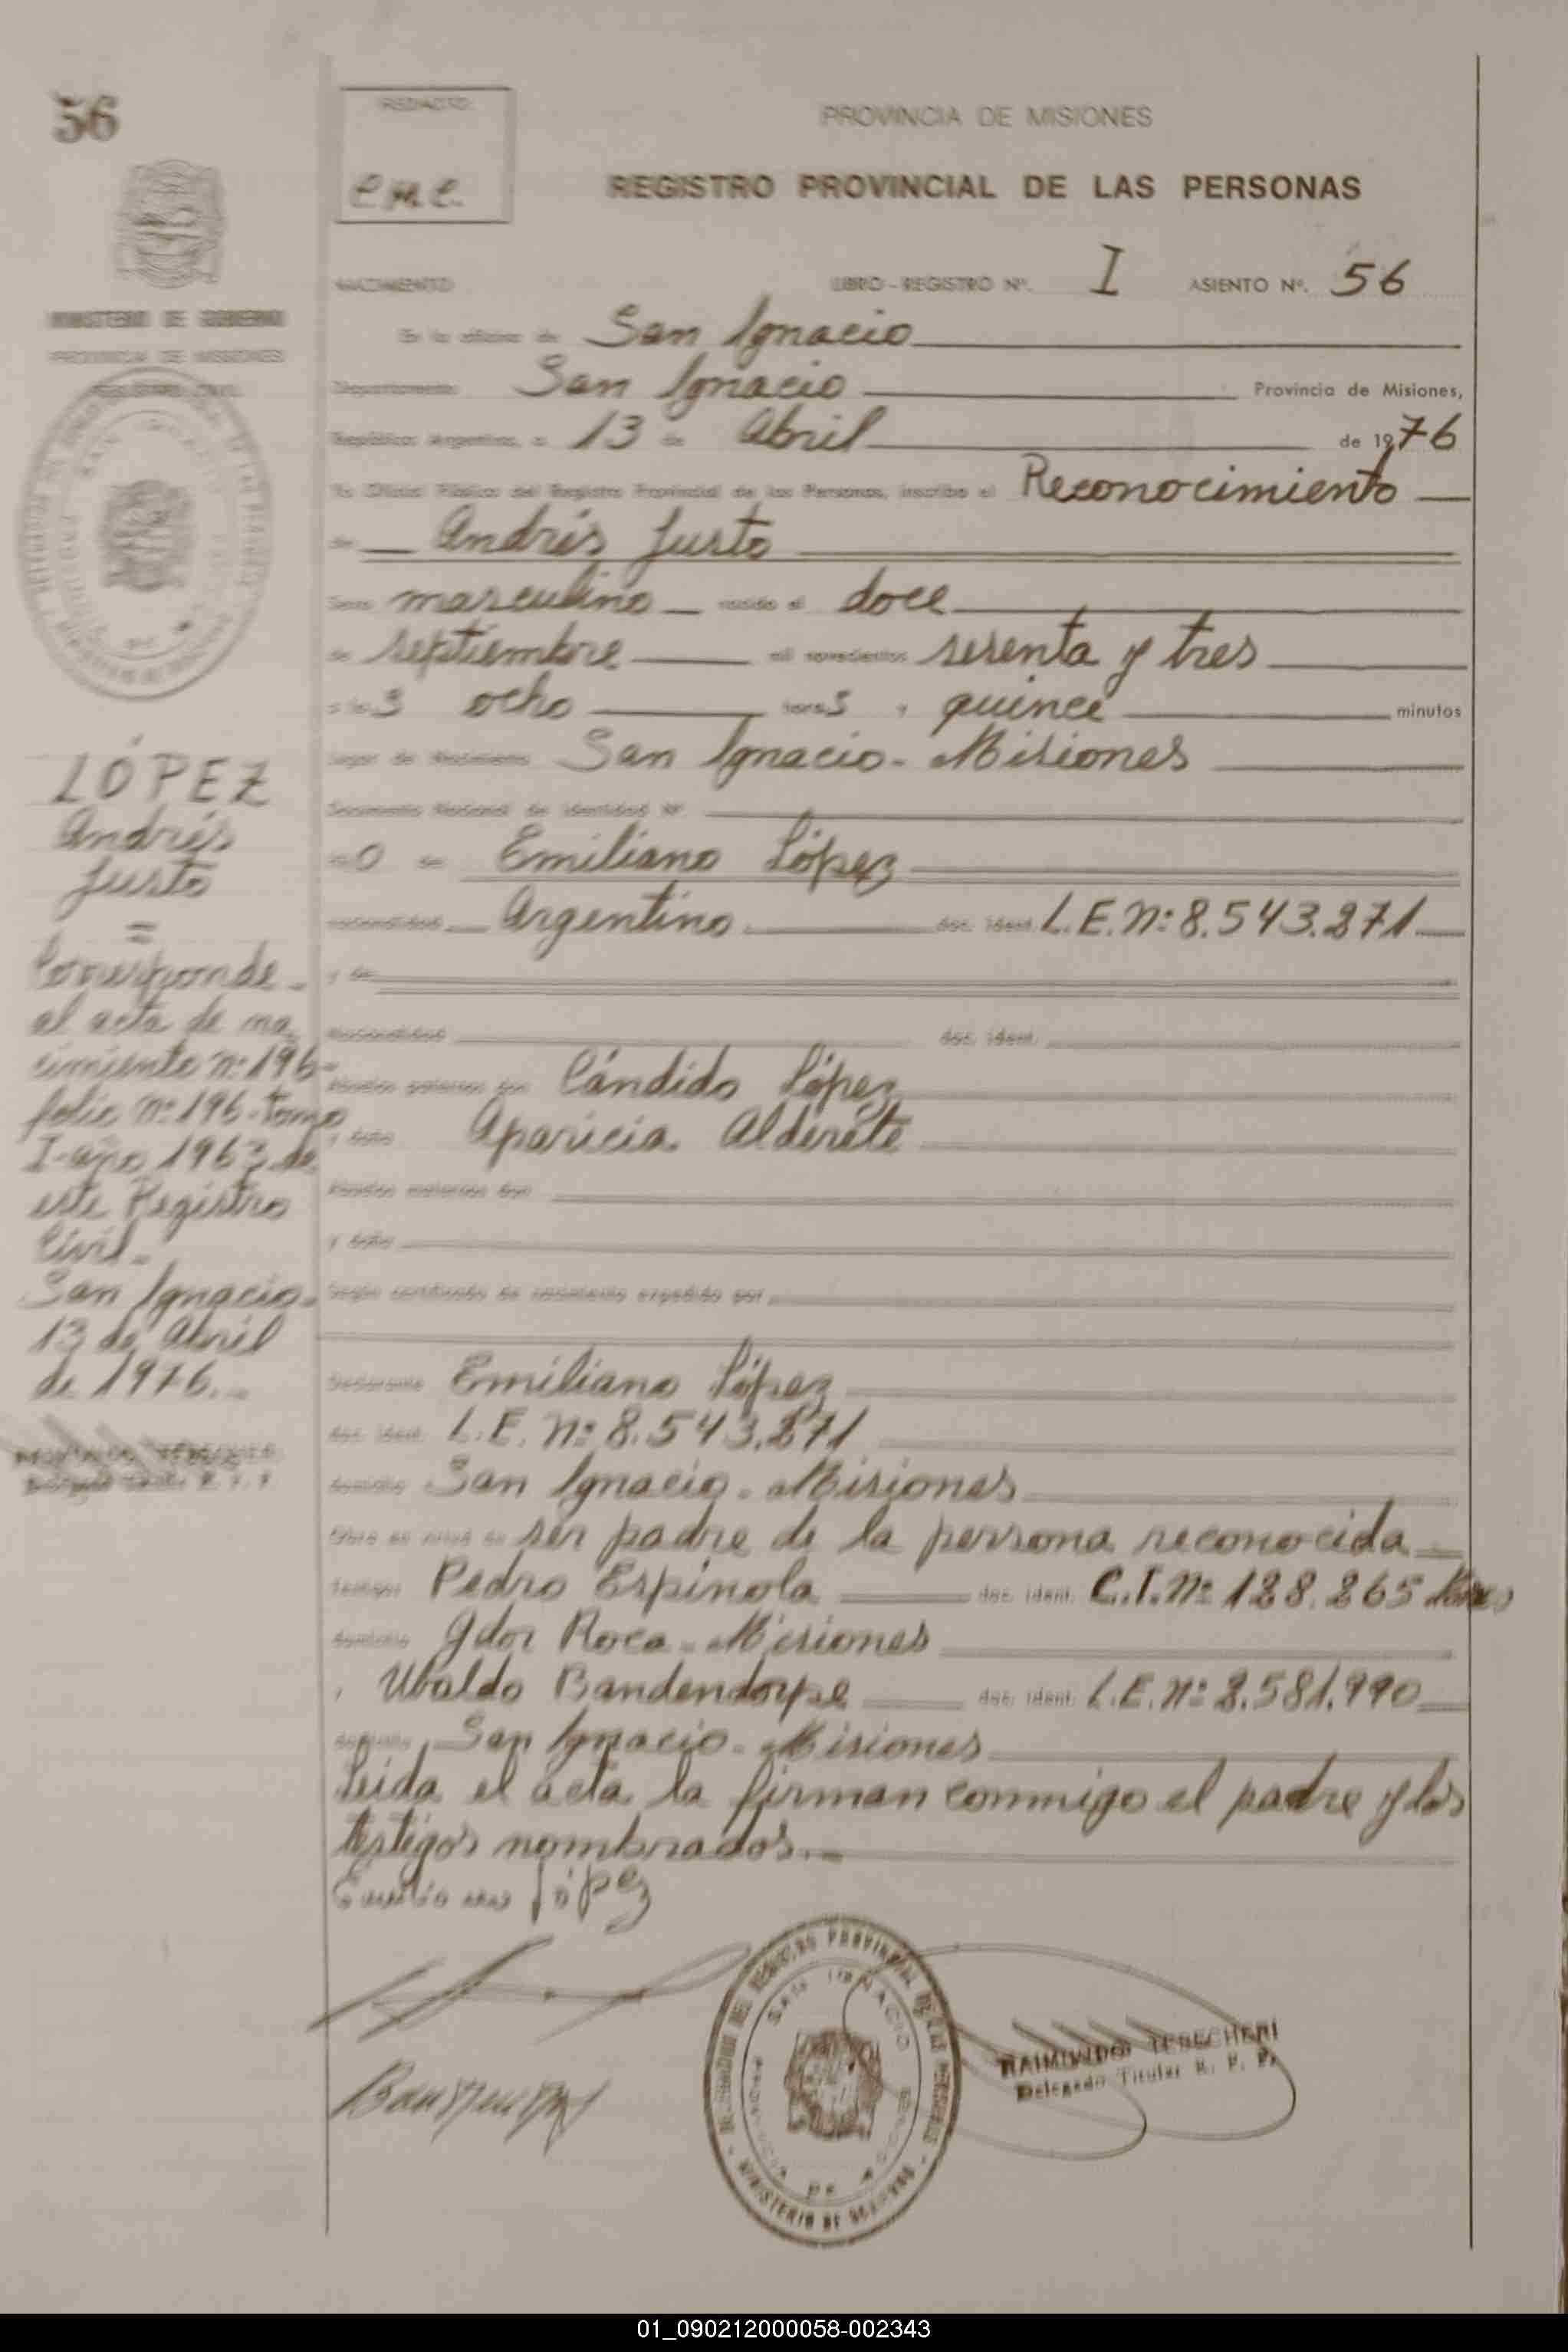 56
REDACTO
C.M.C.
PROVINCIA DE MISIONES
REGISTRO PROVINCIAL DE LAS PERSONAS
NACIMIENTO LIBRO - REGISTRO Nº. I ASIENTO Nº. 56
MINISTERIO DE GOBIERNO
PROVINCIA DE MISIONES
REGISTRO CIVIL
En la oficina de San Ignacio
Departamento San Ignacio Provincia de Misiones,
República Argentina, a 13 de Abril de 1976
Yo Oficial Público del Registro Provincial de las Personas, inscribo el Reconocimiento
de Andrés Justo
Sexo masculino nacido el doce
de septiembre mil novecientos sesenta y tres
a las ocho horas y quince minutos
Lugar de Nacimiento San Ignacio - Misiones
Documento Nacional de Identidad Nº
Emiliano López
nacionalidad Argentino doc. ident. L.E. Nº: 8.543.271
y de
Nacionalidad doc. ident.
Abuelos paternos don Cándido López
y doña Aparicia Alderete
Abuelos maternos don
y doña
Según certificado de nacimiento expedido por
Declarante Emiliano López
doc. ident. L.E. Nº: 8.543.271
domicilio San Ignacio - Misiones
Obra en virtud de ser padre de la persona reconocida
Testigo Pedro Espínola doc. ident. C.I. Nº: 128.265
domicilio Gdor Roca - Misiones
y Ubaldo Bandendorpe doc. ident. L.E. Nº: 8.581.990
domicilio San Ignacio - Misiones
Leida el acta la firman conmigo el padre y los
testigos nombrados.-
Emiliano López
LÓPEZ
Andrés
Justo
=
Corresponde
al acta de na
cimiento nº: 196-
folio nº: 196-tomo
I-año 1963 de
este Registro
Civil.-
San Ignacio-
13 de Abril
de 1976.-
SAN IGNACIO
MINISTERIO DE GOBIERNO
RAIMUNDO TERECHERI
Delegado Titular R. P. P.
01_090212000058-002343